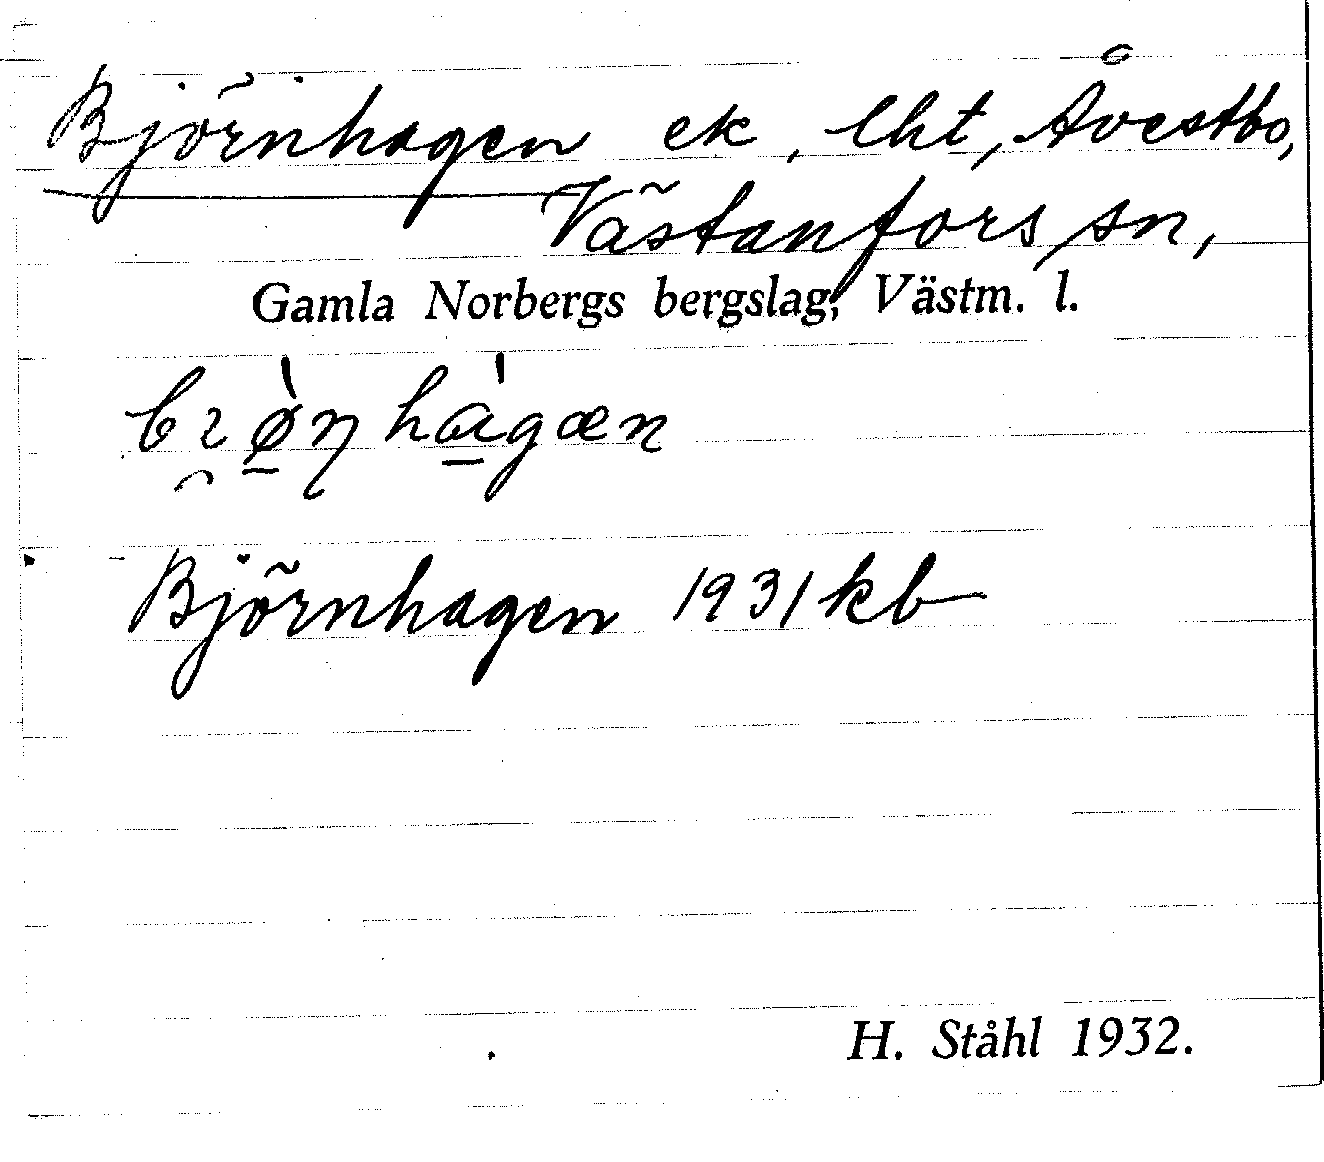 Björnhagen ek, lht, Åvestbo,
Västanfors sn,
Gamla Norbergs bergslag, Västm. l.
Björnhagen 1931 kb
H. Ståhl 1932.